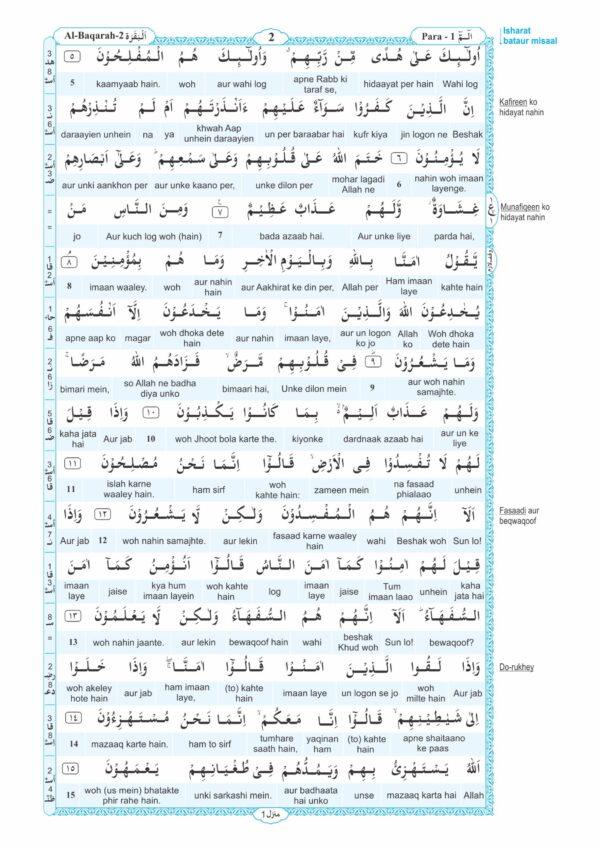 Al-Baqarah-2 اَلْبَقَرَة
2
Para - 1 الٓمّٓ
Isharat
bataur misaal
اُولٰٓئِكَ عَلٰى هُدًى مِّنْ رَّبِّهِمْ ۙ وَاُولٰٓئِكَ هُمُ الْمُفْلِحُوْنَ ٥
Wahi log hidaayat per hain apne Rabb ki taraf se, aur wahi log woh kaamyaab hain. 5
اِنَّ الَّذِيْنَ كَفَرُوْا سَوَآءٌ عَلَيْهِمْ ءَاَنْذَرْتَهُمْ اَمْ لَمْ تُنْذِرْهُمْ
Beshak jin logon ne kufr kiya baraabar hai un per khwah Aap unhein daraayein ya na daraayien unhein
Kafireen ko
hidayat nahin
لَا يُؤْمِنُوْنَ ٦ خَتَمَ اللّٰهُ عَلٰى قُلُوْبِهِمْ وَعَلٰى سَمْعِهِمْ ؕ وَعَلٰٓى اَبْصَارِهِمْ
nahin woh imaan layenge. 6 mohar lagadi Allah ne unke dilon per, aur unke kaano per, aur unki aankhon per
غِشَاوَةٌ ؗ وَّلَهُمْ عَذَابٌ عَظِيْمٌ ٧ وَمِنَ النَّاسِ مَنْ
parda hai, Aur unke liye bada azaab hai. 7 Aur kuch log woh (hain) jo
Munafiqeen ko
hidayat nahin
يَّقُوْلُ اٰمَنَّا بِاللّٰهِ وَبِالْيَوْمِ الْاٰخِرِ وَمَا هُمْ بِمُؤْمِنِيْنَ ٨
kahte hain Ham imaan laye Allah per aur Aakhirat ke din per, aur nahin hain woh imaan waaley. 8
يُخٰدِعُوْنَ اللّٰهَ وَالَّذِيْنَ اٰمَنُوْا ۚ وَمَا يَخْدَعُوْنَ اِلَّآ اَنْفُسَهُمْ
Woh dhoka dete hain Allah ko aur un logon ko jo imaan laye, aur nahin woh dhoka dete hain magar apne aap ko
وَمَا يَشْعُرُوْنَ ٩ فِىْ قُلُوْبِهِمْ مَّرَضٌ ۙ فَزَادَهُمُ اللّٰهُ مَرَضًا ۚ
aur woh nahin samajhte. 9 Unke dilon mein bimaari hai, so Allah ne badha diya unko bimari mein,
وَلَهُمْ عَذَابٌ اَلِيْمٌ ۙ بِمَا كَانُوْا يَكْذِبُوْنَ ١٠ وَاِذَا قِيْلَ
aur un ke liye dardnaak azaab hai kiyonke woh Jhoot bola karte the. 10 Aur jab kaha jata hai
لَهُمْ لَا تُفْسِدُوْا فِى الْاَرْضِ ۙ قَالُوْٓا اِنَّمَا نَحْنُ مُصْلِحُوْنَ ١١
unhein na fasaad phialaao zameen mein woh kahte hain: ham sirf islah karne waaley hain. 11
اَلَآ اِنَّهُمْ هُمُ الْمُفْسِدُوْنَ وَلٰكِنْ لَّا يَشْعُرُوْنَ ١٢ وَاِذَا
Sun lo! Beshak woh wahi fasaad karne waaley hain aur lekin woh nahin samajhte. 12 Aur jab
Fasaadi aur
beqwaqoof
قِيْلَ لَهُمْ اٰمِنُوْا كَمَآ اٰمَنَ النَّاسُ قَالُوْٓا اَنُؤْمِنُ كَمَآ اٰمَنَ
kaha jata hai unhein Tum imaan laao jaise imaan laye log woh kahte hain kya hum imaan layein jaise imaan laye
السُّفَهَآءُ ؕ اَلَآ اِنَّهُمْ هُمُ السُّفَهَآءُ وَلٰكِنْ لَّا يَعْلَمُوْنَ ١٣
bewaqoof? Sun lo! beshak Khud woh wahi bewaqoof hain aur lekin woh nahin jaante. 13
وَاِذَا لَقُوا الَّذِيْنَ اٰمَنُوْا قَالُوْٓا اٰمَنَّا ۖۚ وَاِذَا خَلَوْا
Aur jab woh milte hain un logon se jo imaan laye (to) kahte hain ham imaan laye, aur jab woh akeley hote hain
Do-rukhey
اِلٰى شَيٰطِيْنِهِمْ ۙ قَالُوْٓا اِنَّا مَعَكُمْ ۙ اِنَّمَا نَحْنُ مُسْتَهْزِءُوْنَ ١٤
apne shaitaano ke paas (to) kahte hain yaqinan ham tumhare saath hain, ham to sirf mazaaq karte hain. 14
اَللّٰهُ يَسْتَهْزِئُ بِهِمْ وَيَمُدُّهُمْ فِىْ طُغْيَانِهِمْ يَعْمَهُوْنَ ١٥
Allah mazaaq karta hai unse aur badhaata hai unko unki sarkashi mein. woh (us mein) bhatakte phir rahe hain. 15
منزل ١